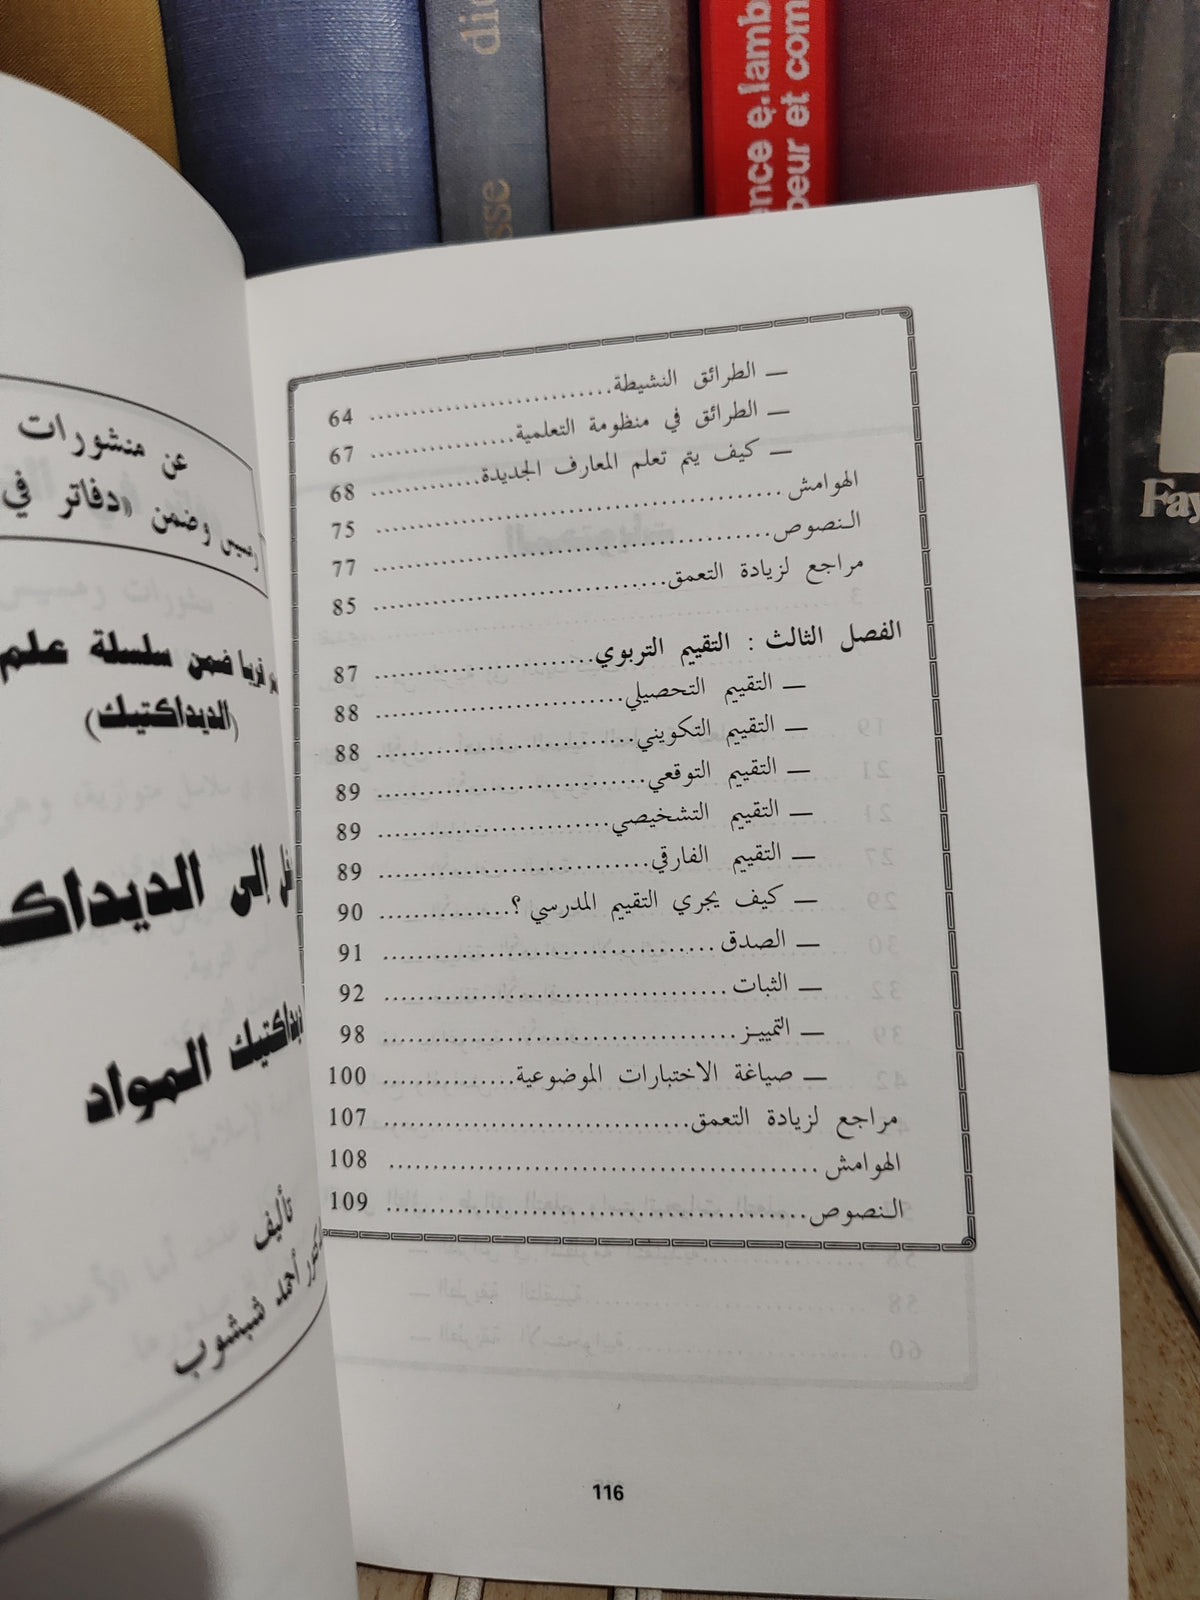 — الطرائق النشيطة.................................... 64
— الطرائق في منظومة التعلمية.................................... 67
— كيف يتم تعلم المعارف الجديدة.................................... 68
الهوامش.................................... 75
النصوص.................................... 77
مراجع لزيادة التعمق.................................... 85
الفصل الثالث : التقييم التربوي.................................... 87
— التقييم التحصيلي.................................... 88
— التقييم التكويني.................................... 88
— التقييم التوقعي.................................... 89
— التقييم التشخيصي.................................... 89
— التقييم الفارقي.................................... 89
— كيف يجري التقييم المدرسي ؟.................................... 90
— الصدق.................................... 91
— الثبات.................................... 92
— التمييز.................................... 98
— صياغة الاختبارات الموضوعية.................................... 100
مراجع لزيادة التعمق.................................... 107
الهوامش.................................... 108
النصوص.................................... 109
116
عن منشورات
وضمن «دفاتر في
ضمن سلسلة علم
(الديداكتيك)
إلى
المواد
تأليف
أحمد شبشوب
e.lamb
et com
Fay